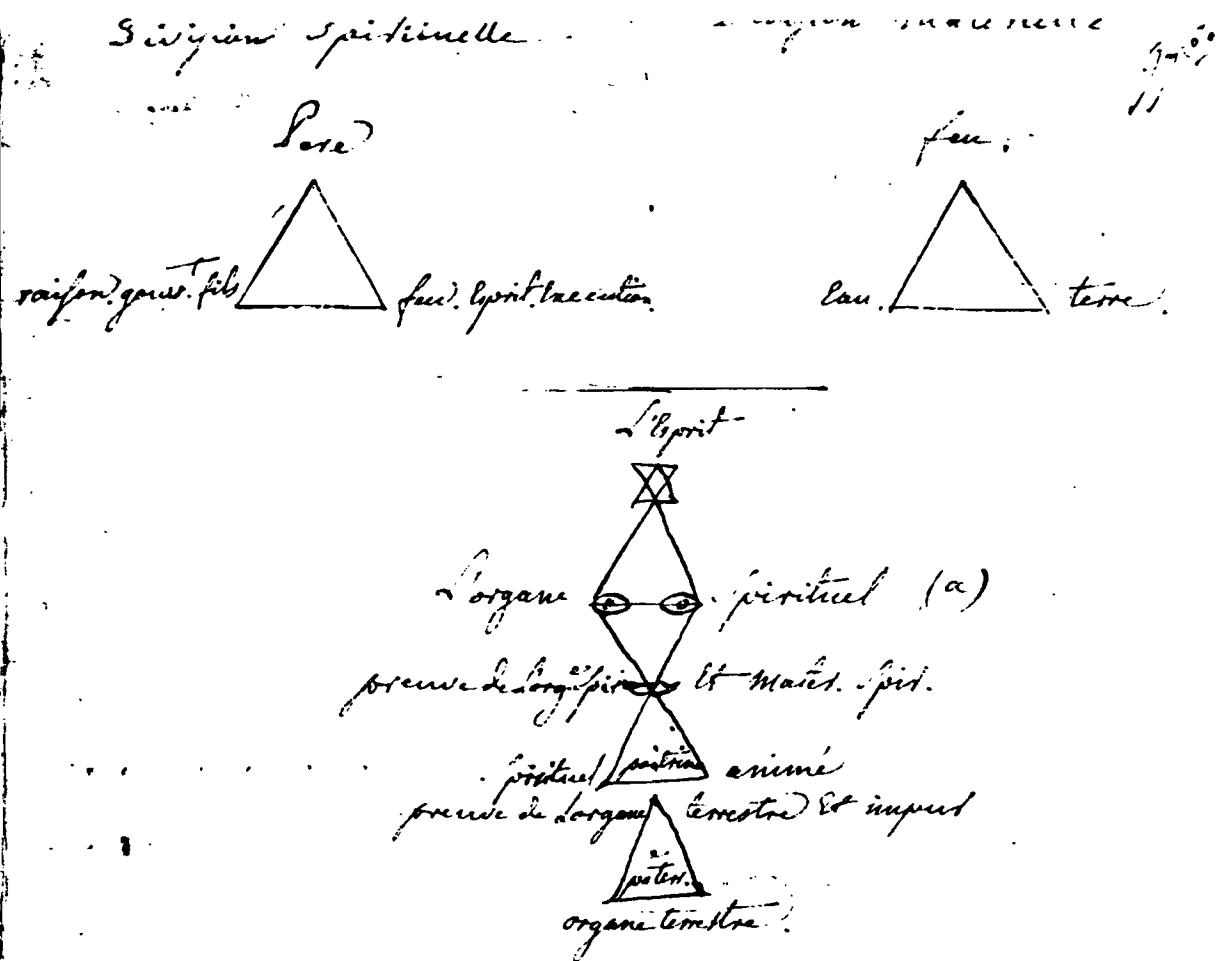 Division spirituelle
Père
feu.
raison. gouv. fils
feu. Esprit. Execution.
Eau.
terre.
L'Esprit
L'organe spirituel (a)
preuve de l'org.e spir Et mater. spir.
spirituel poitrine animé
preuve de Lorgane terrestre Et impur
organe terrestre.